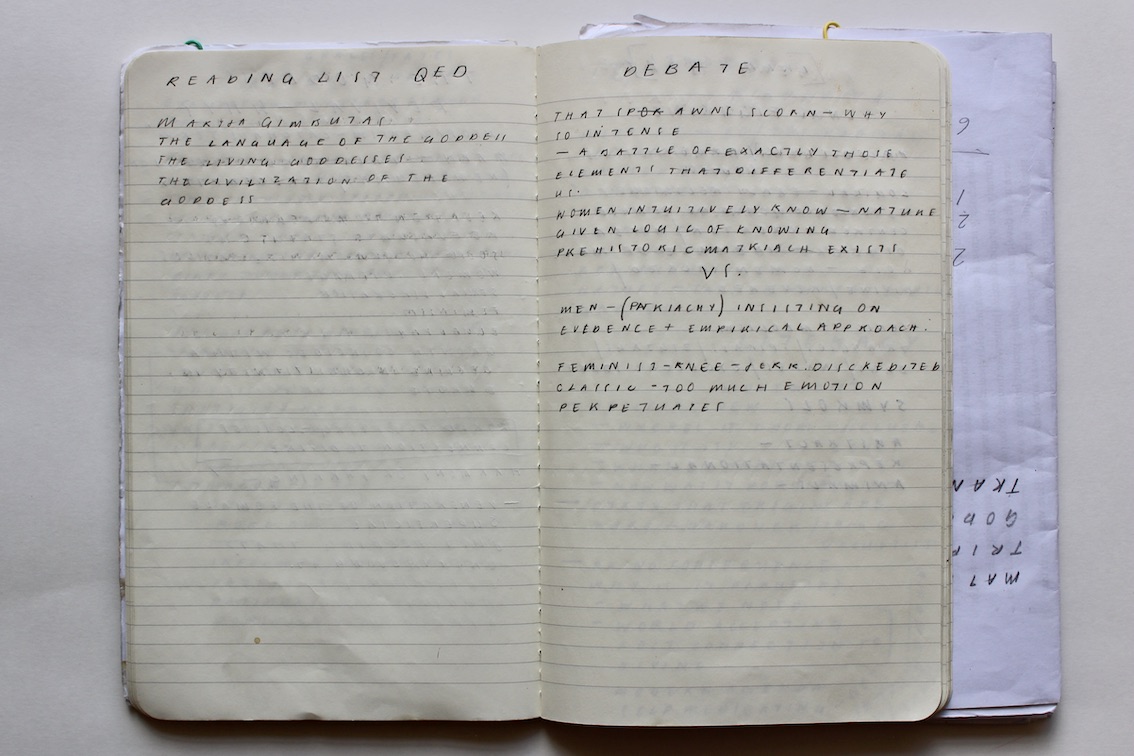 READING LIST QED
MARIJA GIMBUTAS.
THE LANGUAGE OF THE GODDESS
THE LIVING GODDESSES
THE CIVILIZATION OF THE
GODDESS
DEBATE
THAT SPAWNS SCORN - WHY
SO INTENSE
- A BATTLE OF EXACTLY THOSE
ELEMENTS THAT DIFFERENTIATE
US.
WOMEN INTUITIVELY KNOW - NATURE
GIVEN LOGIC OF KNOWING
PREHISTORIC MATRIACH EXISTS
VS.
MEN - (PATRIACHY) INSISTING ON
EVEDENCE + EMPIRICAL APPROACH.
FEMINIST-KNEE-JERK.DISCREDITED
CLASSIC - TOO MUCH EMOTION
PERPETUATES
6
1
2
2
TRAN
GOD
TRIP
MAT